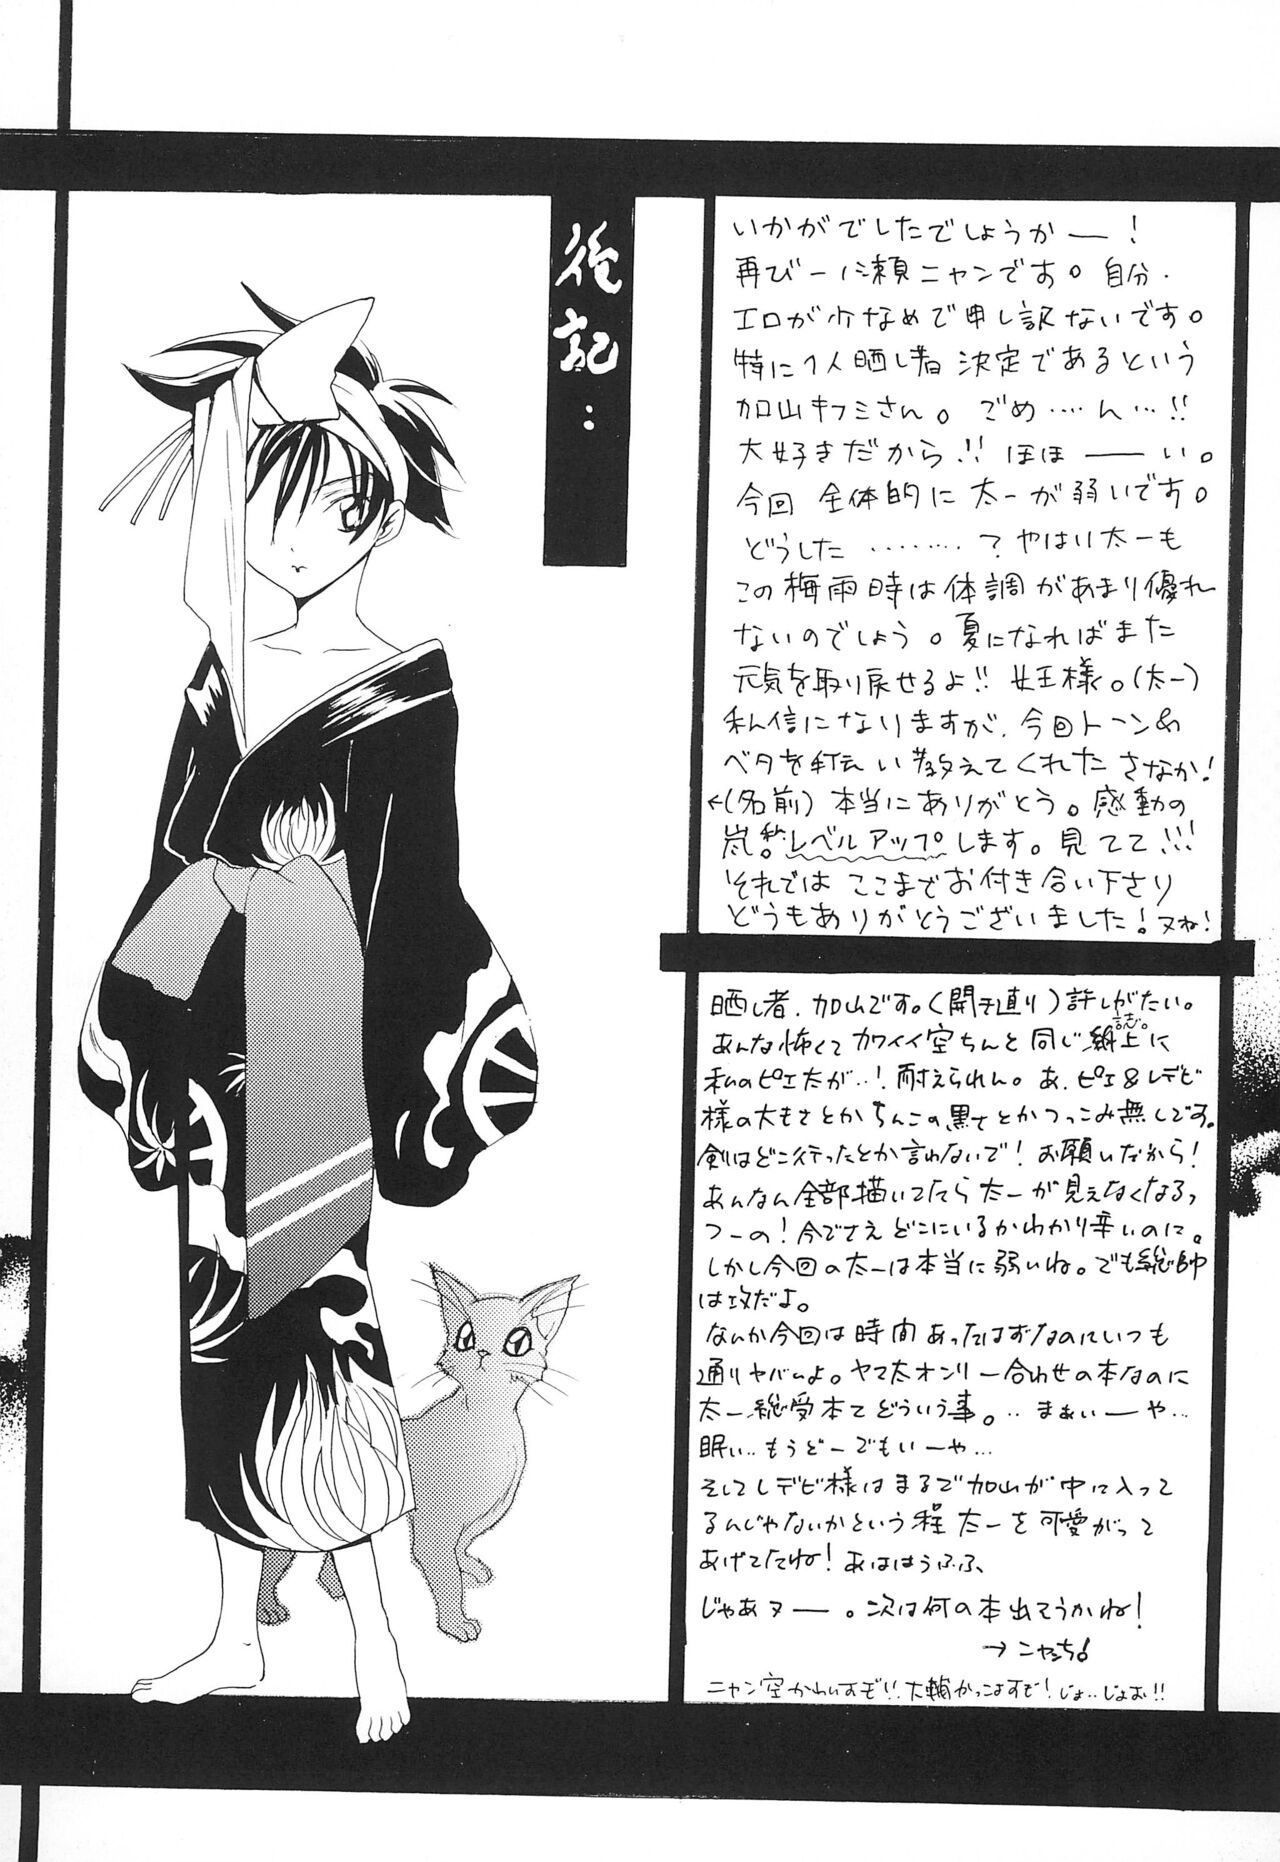 後記:
いかがでしたでしょうかー!
再び一ノ瀬ニャンです。自分、
エロが少なめで申し訳ないです。
特に1人晒し者決定であるという
加山キフミさん。ごめ……ん…!!
大好きだから!!ほほーい。
今回全体的に太一が弱いです。
どうした………?やはり太一も
この梅雨時は体調があまり優れ
ないのでしょう。夏になればまた
元気を取り戻せるよ!!女王様。(太一)
私信になりますが、今回トーン&
ベタを手伝い教えてくれたさなか!
←(名前)本当にありがとう。感動の
嵐。私レベルアップします。見てて!!!
それではここまでお付き合い下さり
どうもありがとうございました!ヌね!
晒し者、加山です。(開き直り)許しがたい。
あんな怖くてカワイイ空ちんと同じ誌上に
私のピエ太が…!耐えられん。あ、ピエ&レデビ
様の太もさとかちんこの黒さとかつっこみ無しです。
剣はどこ行ったとか言わないで!お願いだから!
あんなん全部描いてたら太一が見えなくなるっ
つーの!今でさえどこにいるかわかり辛いのに。
しかし今回の太一は本当に弱いね。でも総帥
は攻だよ。
なんか今回は時間あったはずなのにいつも
通りヤバいよ。ヤマ太オンリー合わせの本なのに
太一総受本てどういう事。‥まぁいーや…
眠い‥もうどーでもいーや…
そしてレデビ様はまるで加山が中に入って
るんじゃないかという程太一を可愛がって
あげてたね!あははうふふ、
じゃあヌー。次は何の本出てうかね!
→ニャンち!
ニャン空かわいすぞ!!大輔かっこよすぞ!じょ‥じょお!!